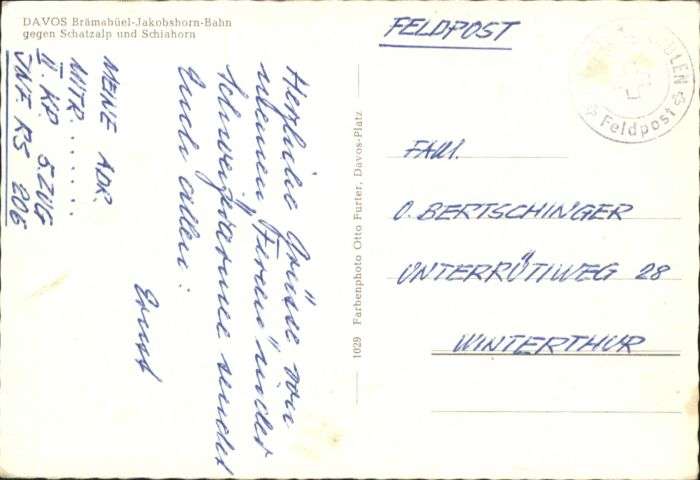 DAVOS Brämabüel-Jakobshorn-Bahn
gegen Schatzalp und Schiahorn
MEINE ADR.
MITR.......
II. KP. 5. ZUG
INF RS 206
Herzliche Grüsse von
meinen "Ferien" in der
Schweizerarmee sendet
Euch allen:
Ernst
1029 Farbenphoto Otto Furter, Davos-Platz
FELDPOST
Feldpost
FAM.
O. BERTSCHINGER
UNTERRÜTIWEG 28
WINTERTHUR